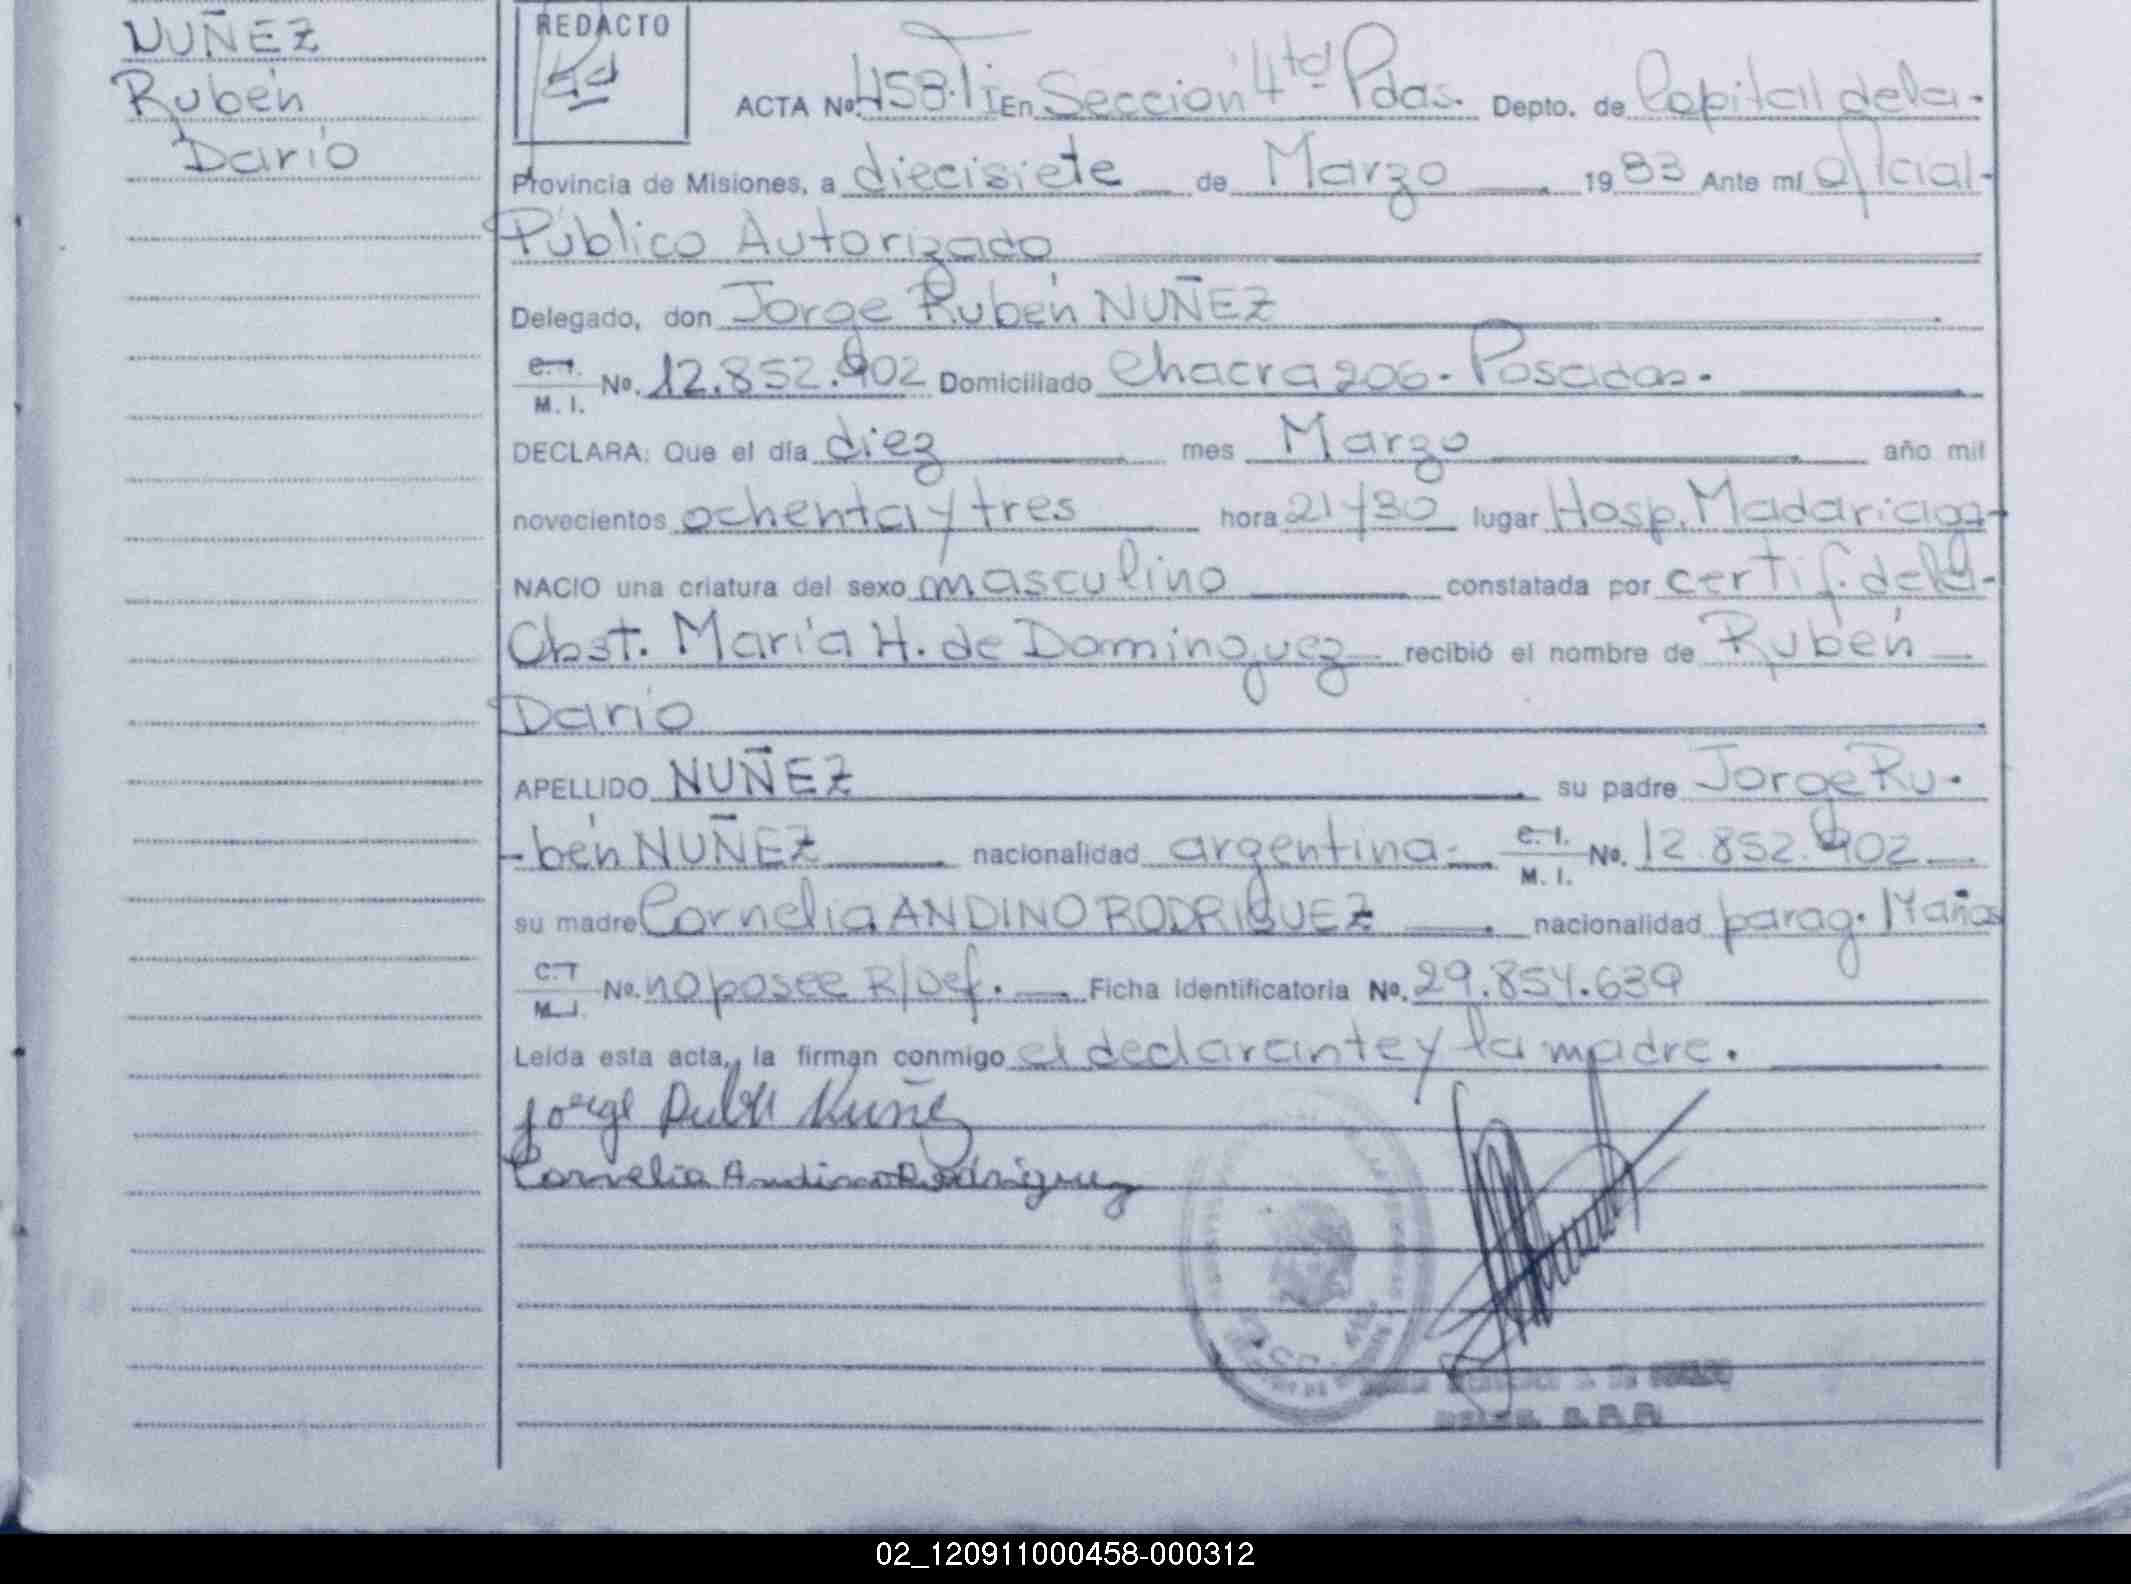 NUÑEZ
Rubén
Darío
REDACTO
ACTA Nº. 458.TI En Sección 4ta Pdas. Depto. de Capital de la-
Provincia de Misiones, a diecisiete de Marzo 1983 Ante mí oficial-
Público Autorizado
Delegado, don Jorge Rubén NUÑEZ
C.I. M.I. Nº. 12.852.902 Domiciliado Chacra 206.- Posadas.-
DECLARA: Que el día diez mes Marzo año mil
novecientos ochenta y tres hora 21/30 lugar Hosp. Madariaga-
NACIO una criatura del sexo masculino constatada por certif. de la-
Obst. María H. de Dominguez recibió el nombre de Rubén
Darío
APELLIDO NUÑEZ su padre Jorge Ru-
-bén NUÑEZ nacionalidad argentina.- C.I. M.I. Nº. 12.852.902
su madre Cornelia ANDINO RODRIGUEZ nacionalidad parag. 17 años
C.I. M.I. Nº. no posee R/Def. Ficha Identificatoria Nº. 29.854.639
Leída esta acta, la firman conmigo el declarante y la madre.
Jorge Rubén Nuñez
Cornelia Andino Rodriguez
02_120911000458-000312